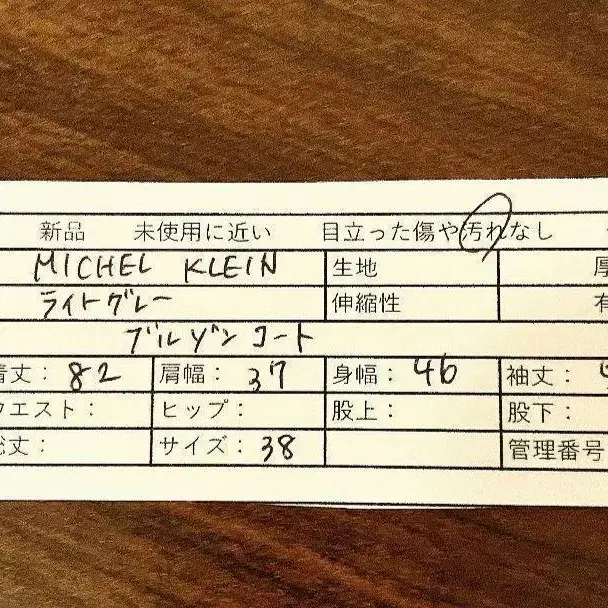 新品 未使用に近い 目立った傷や汚れなし
MICHEL KLEIN 生地 厚
ライトグレー 伸縮性 有
ブルゾン コート
着丈： 82 肩幅： 37 身幅： 46 袖丈：
ウエスト： ヒップ： 股上： 股下：
総丈： サイズ： 38 管理番号